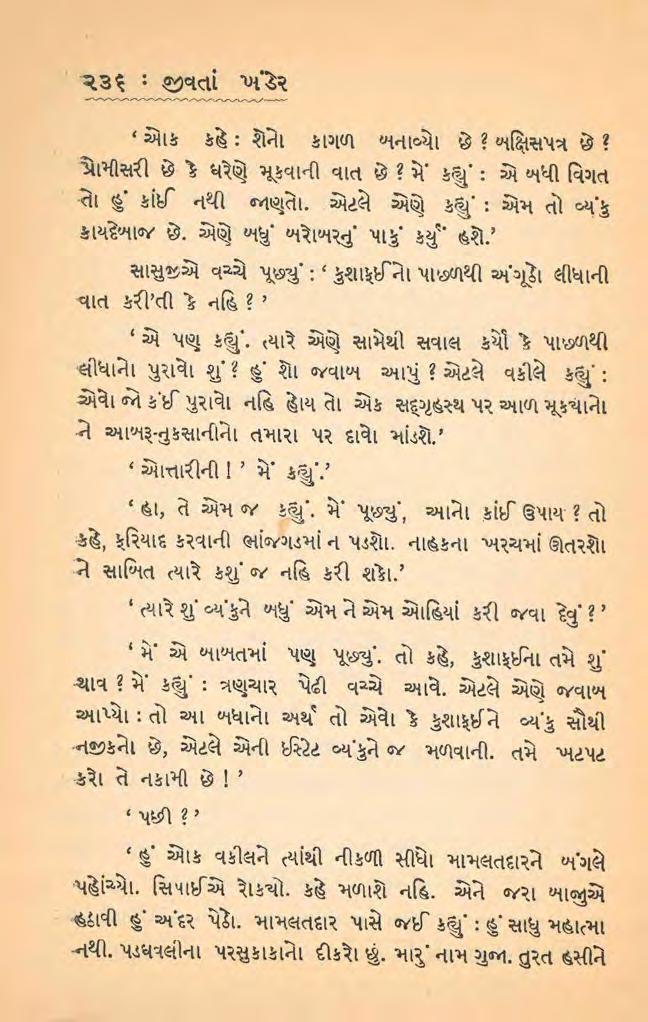 ૨૩૬ : જીવતાં ખંડેર
‘ ઓક કહે : શેનો કાગળ બનાવ્યો છે ? બક્ષિસપત્ર છે ?
પ્રોમીસરી છે કે ઘરેણે મૂકવાની વાત છે ? મેં કહ્યું : એ બધી વિગત
તો હું કાંઈ નથી જાણતો. એટલે એણે કહ્યું : એમ તો વ્યંકુ
કાયદેબાજ છે. એણે બધું બરોબરનું પાકું કર્યું હશે.’
સાસુજીએ વચ્ચે પૂછ્યું : ‘ કુશાફઈનો પાછળથી અંગૂઠો લીધાની
વાત કરી’તી કે નહિ ? ’
‘ એ પણ કહ્યું. ત્યારે એણે સામેથી સવાલ કર્યો કે પાછળથી
લીધાનો પુરાવો શું ? હું શો જવાબ આપું ? એટલે વકીલે કહ્યું :
એવો જો કંઈ પુરાવો નહિ હોય તો એક સદ્ગૃહસ્થ પર આળ મૂકવાનો
ને આબરૂ-નુકસાનીનો તમારા પર દાવો માંડશે.’
‘ ઓત્તારીની ! ’ મેં કહ્યું.’
‘ હા, તે એમ જ કહ્યું. મેં પૂછ્યું, આનો કાંઈ ઉપાય ? તો
કહે, ફરિયાદ કરવાની ભાંજગડમાં ન પડશો. નાહકના ખરચમાં ઊતરશો
ને સાબિત ત્યારે કશું જ નહિ કરી શકો.’
‘ ત્યારે શું વ્યંકુને બધું એમ ને એમ ઓહિયાં કરી જવા દેવું ? ’
‘ મેં એ બાબતમાં પણ પૂછ્યું. તો કહે, કુશાફઈના તમે શું
થાવ ? મેં કહ્યું : ત્રણચાર પેઢી વચ્ચે આવે. એટલે એણે જવાબ
આપ્યો : તો આ બધાનો અર્થ તો એવો કે કુશાફઈને વ્યંકુ સૌથી
નજીકનો છે, એટલે એની ઈસ્ટેટ વ્યંકુને જ મળવાની. તમે ખટપટ
કરો તે નકામી છે ! ’
‘ પછી ? ’
‘ હું ઓક વકીલને ત્યાંથી નીકળી સીધો મામલતદારને બંગલે
પહોંચ્યો. સિપાઈએ રોક્યો. કહે મળાશે નહિ. એને જરા બાજુએ
હઠાવી હું અંદર પેઠો. મામલતદાર પાસે જઈ કહ્યું : હું સાધુ મહાત્મા
નથી. પડધવલીના પરસુકાકાનો દીકરો છું. મારું નામ ગુજા. તુરત હસીને